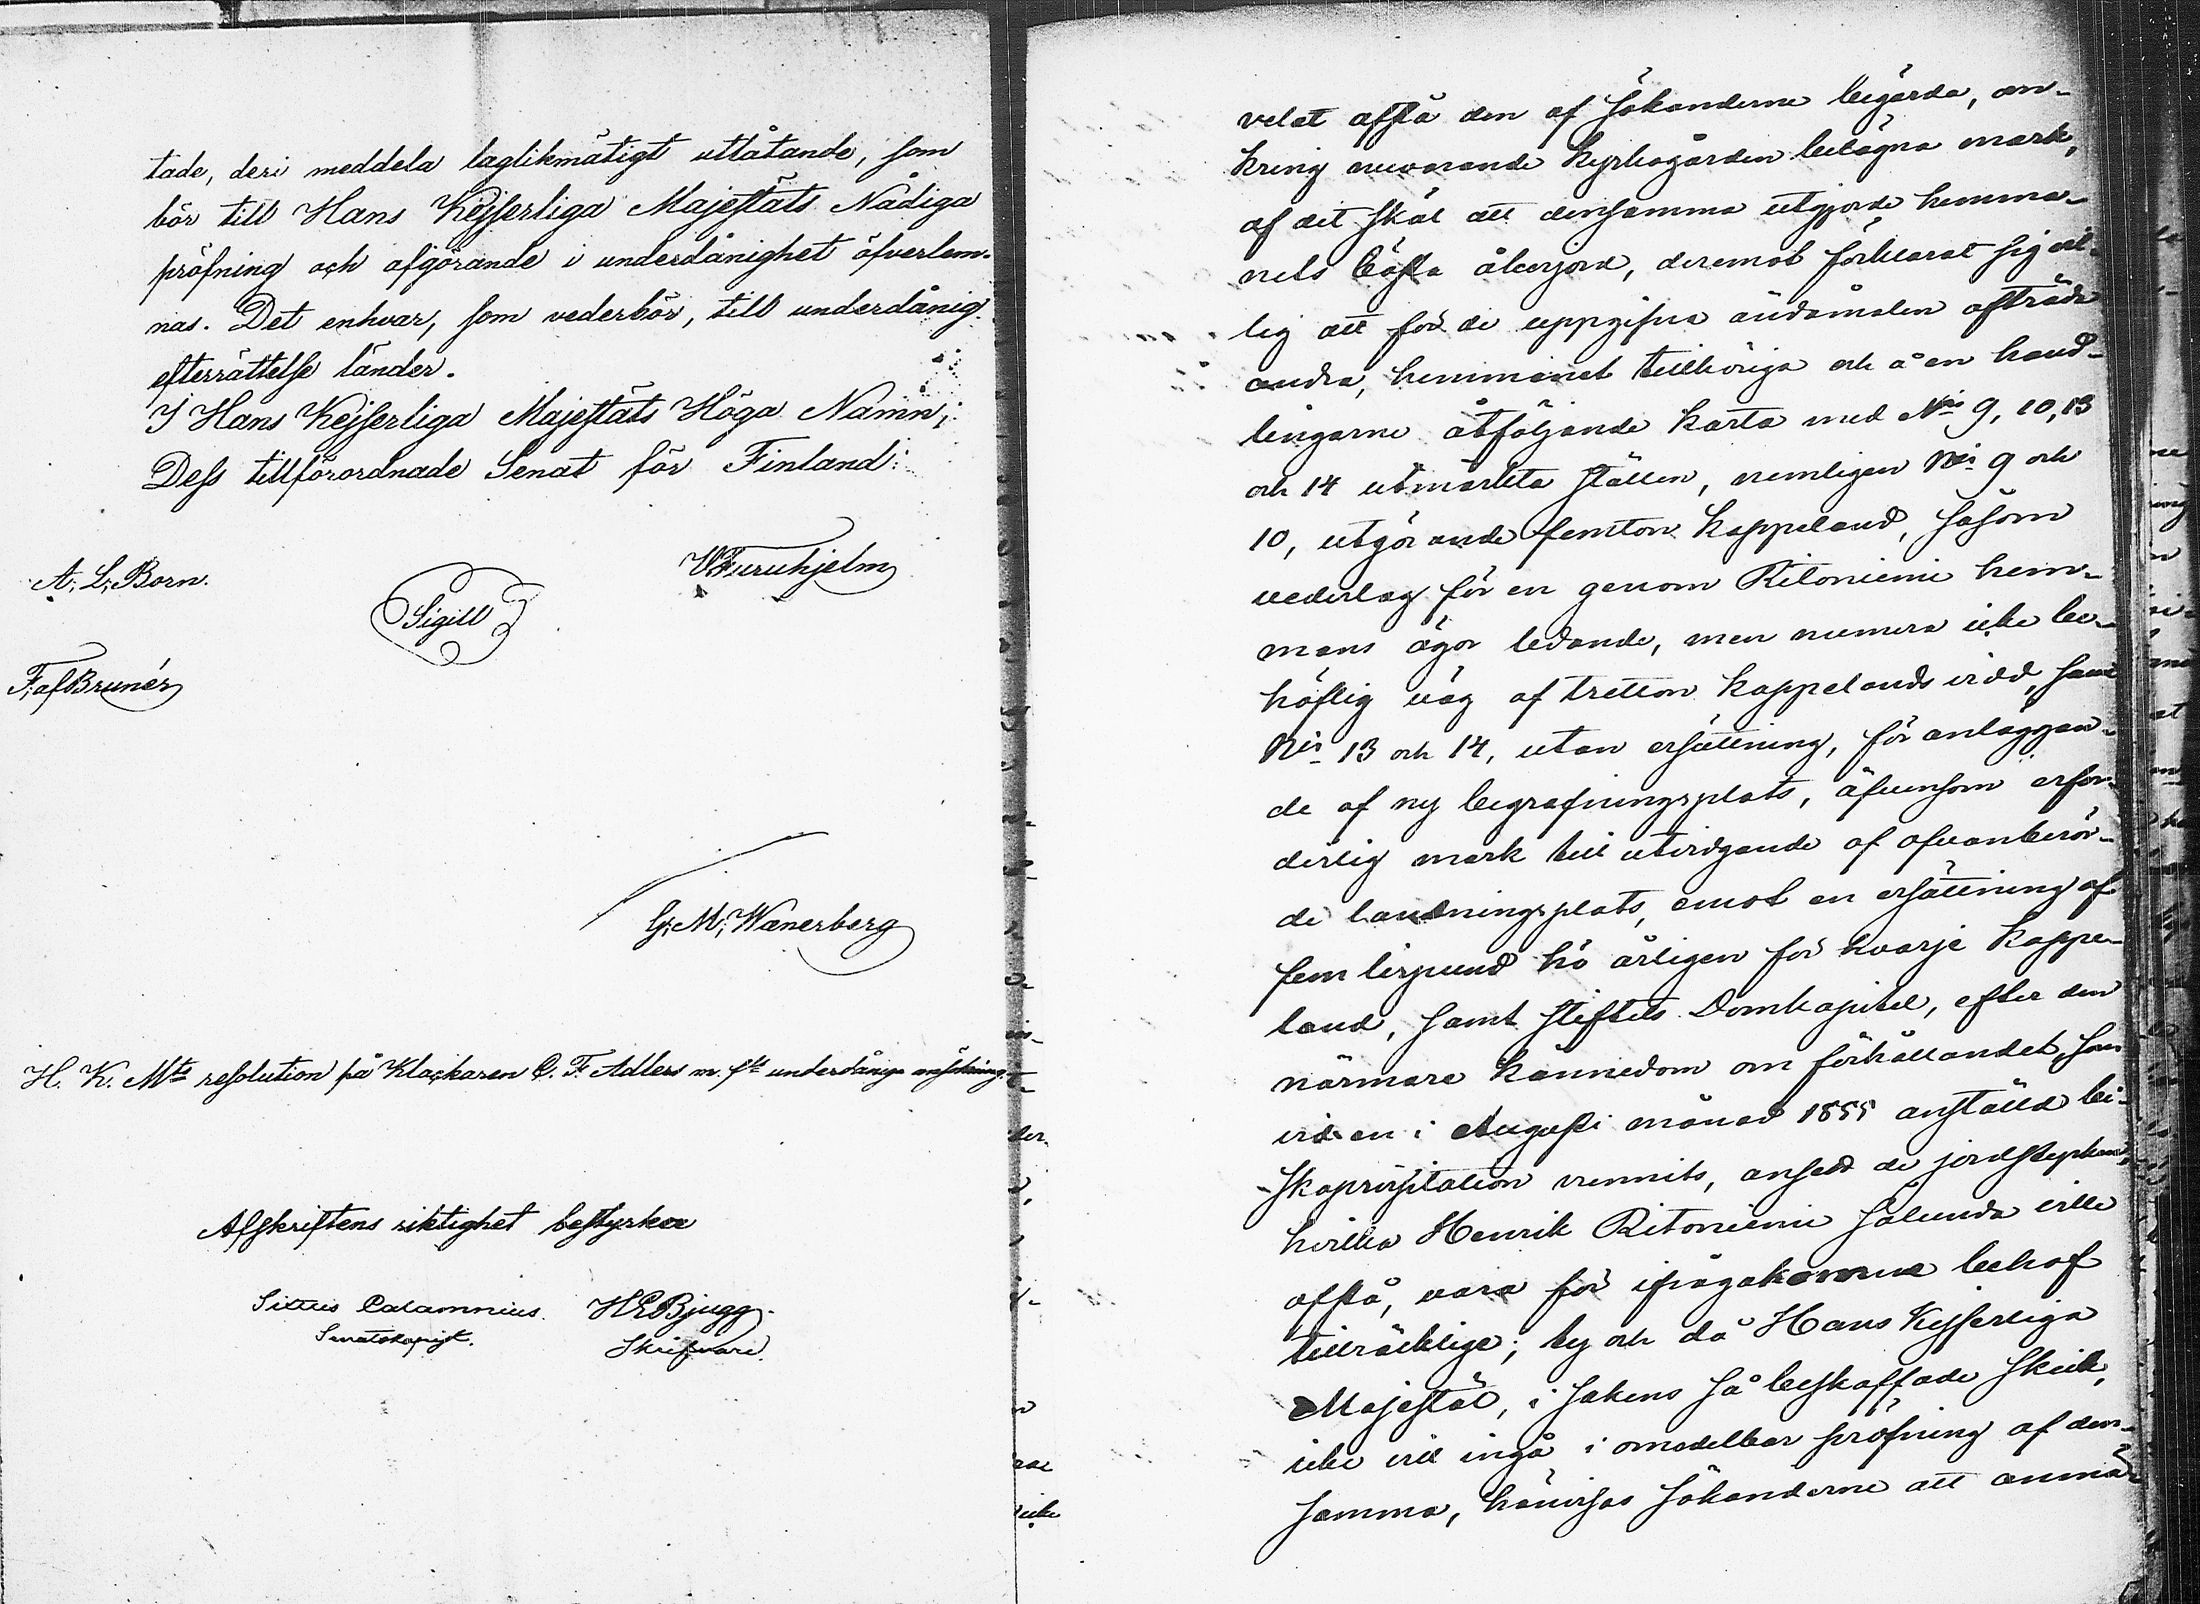 tade, deri meddela laglikmätigt utlåtande, som
bör till Hans Kejserliga Majestäts Nådiga
pröfning och afgörande i underdånighet öfverlem-
nas. Det enhvar, som vederbör, till underdånig
efterrättelse länder.
I Hans Kejserliga Majestäts Höga Namn;
Dess tillförordnade Senat för Finland:
A. L. Born.
Sigill
V Furuhjelm
F. af Brunér
G. M. Wænerberg
H. K. Mts resolution på Klockaren C. F. Adlers m. fl: underdåniga ansökning.
Afskriftens riktighet bestyrker
Sixtus Calamnius.
Senatskopist.
H E Bjugg.
Skrifvare.
velat afstå den af sökanderne begärda, om-
kring nuvarande kyrkogården belägna mark,
af det skäl att densamma utgjorde hemma-
nets bästa åkerjord, deremot förklarat sig vil-
lig att för de uppgifna ändamålen afträda
andra, hemmanet tillhöriga och å en hand-
lingarne åtföljande karta med N:ris 9, 10, 13
och 14 utmärkta ställen, nemligen N:ris 9 och
10, utgörande femton kappeland, såsom
vederlag för en genom Ritoniemi hem-
mans ägor ledande, men numera icke be-
höflig väg af tretton kappelands vidd, samt
N:ris 13 och 14, utan ersättning, för anläggan-
de af ny begrafningsplats, äfvensom erfor-
derlig mark till utvidgande af ofvanberör-
de landningsplats, emot en ersättning af
fem lispund hö årligen för hvarje kappe-
land, samt Stiftets Domkapitel, efter den
närmare kännedom om förhållandet, som
vid en i Augusti månad 1855 anställd bi-
skopsvisitation vunnits, ansett de jordstycken,
hvilka Henrik Ritoniemi sålunda ville
afstå, vara för ifrågakomne behof
tillräcklige; ty och då Hans Kejserliga
Majestät, i sakens så beskaffade skick,
icke vill ingå i omedelbar pröfning af den-
samma, hänvisas sökanderne att anmä-